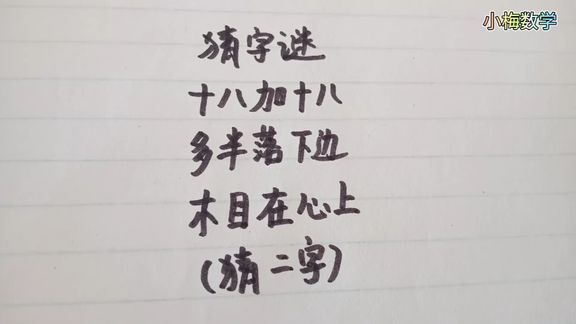 小梅数学
猜字谜
十八加十八
多半落下边
木目在心上
(猜二字)